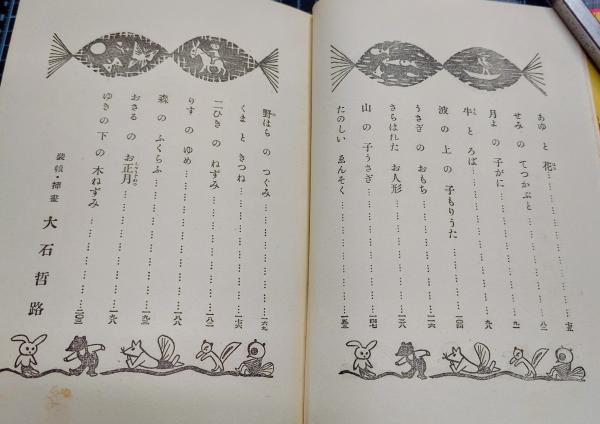 あゆ と 花はな……………………七五
せみ の てつかぶと……………………八二
月よ の 子がに……………………九一
牛 と ろば……………………九八
波 の 上 の 子もりうた……………………一〇四
うさぎ の おもち……………………一一六
さらはれた お人形……………………一三六
山 の 子うさぎ……………………一四七
たのしい ゑんそく……………………一五三
野のはら の つぐみ……………………一六九
くま と きつね……………………一七六
二ひき の ねずみ……………………一八二
りす の ゆめ……………………一八八
森 の ふくらふ……………………一九二
おさる の お正月しょうぐわつ……………………一九八
ゆき の 下 の 木ねずみ……………………二〇三
装幀・挿畫 大石哲路